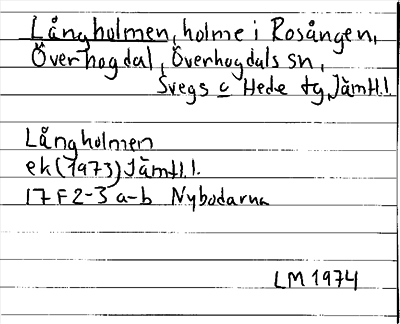 Långholmen, holme i Rosången,
Överhogdal, Överhogdals sn,
Svegs o Hede tg, Jämtl.l.
Långholmen
ek (1973) Jämtl.l.
17 F 2-3 a-b Nybodarna
LM 1974